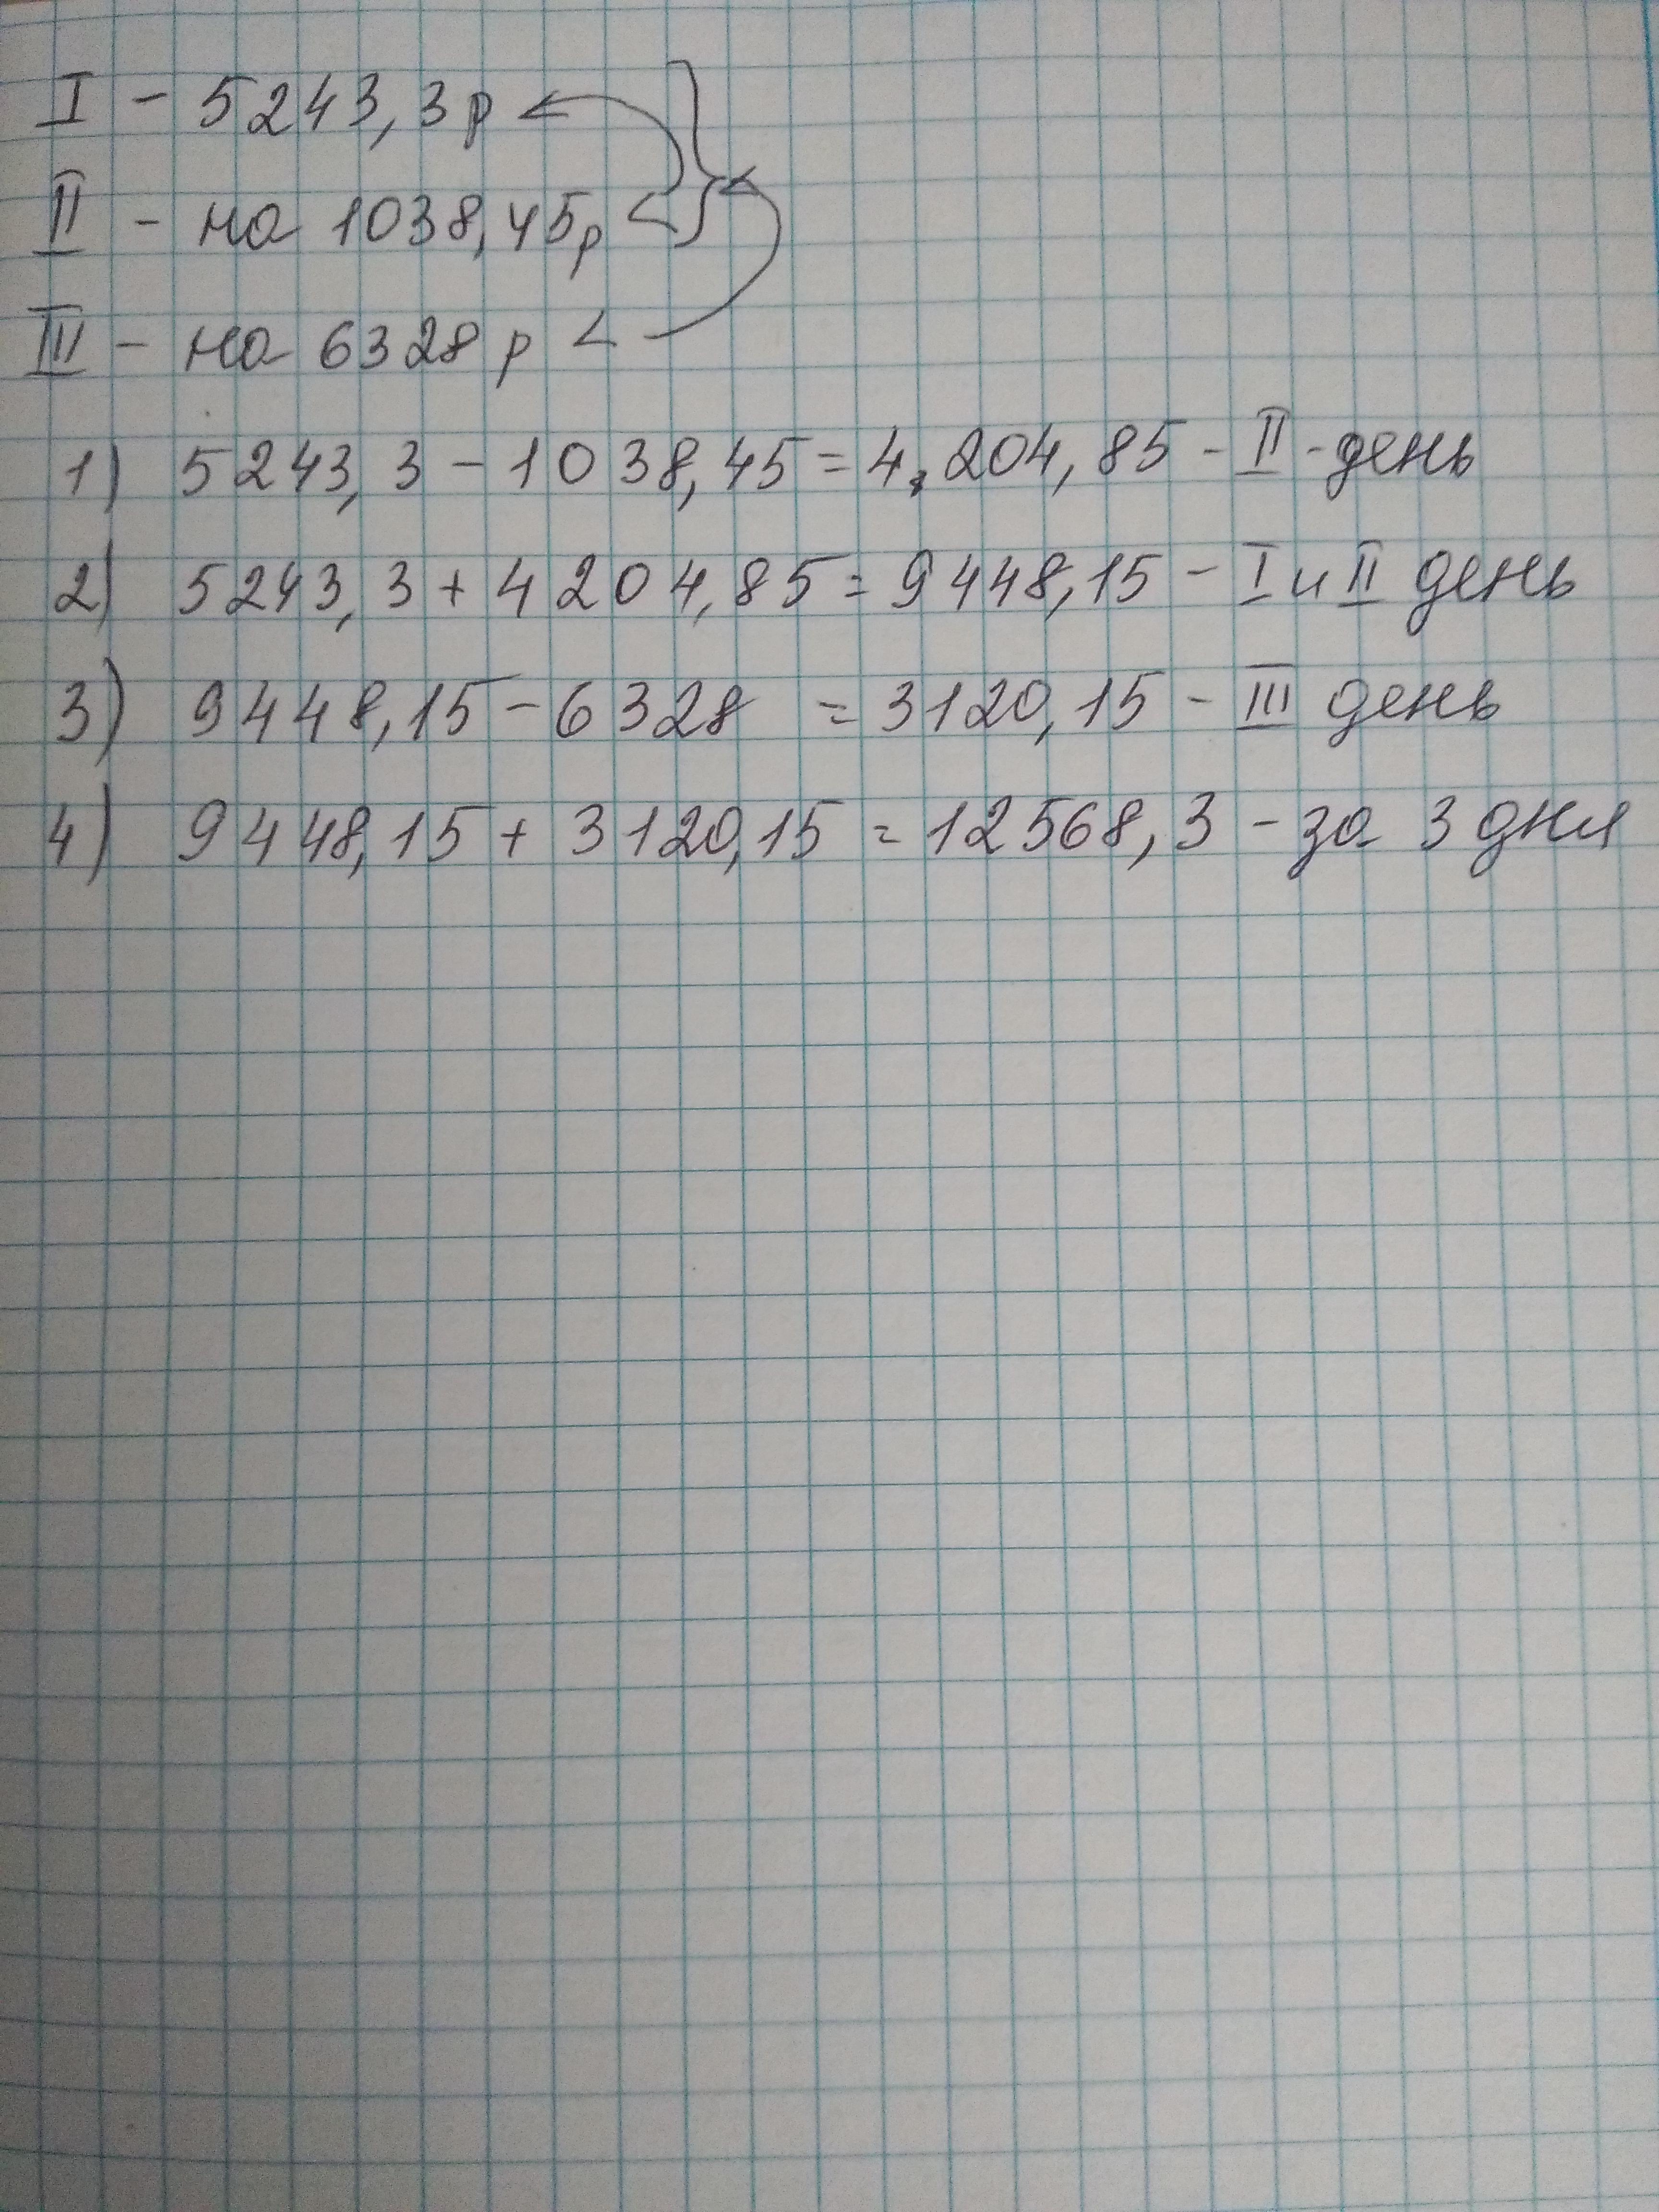 I - 5243,3р
II - на 1038,45р <
III - на 6328 р <
1) 5243,3 - 1038,45 = 4204,85 - II - день
2) 5243,3 + 4204,85 = 9448,15 - I и II день
3) 9448,15 - 6328 = 3120,15 - III день
4) 9448,15 + 3120,15 = 12568,3 - за 3 дня